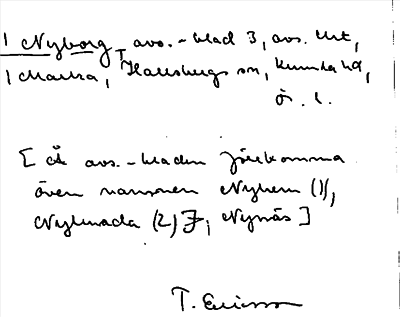 1 Nyborg, avs.-blad 3, avs. lht,
1 Marka, Hallsbergs sn, Kumla hd,
ör. l.
[Å avs.-bladen förekomma
även namnen Nyhem (1),
Nylunda (2) , Nynäs]
T. Ericsson